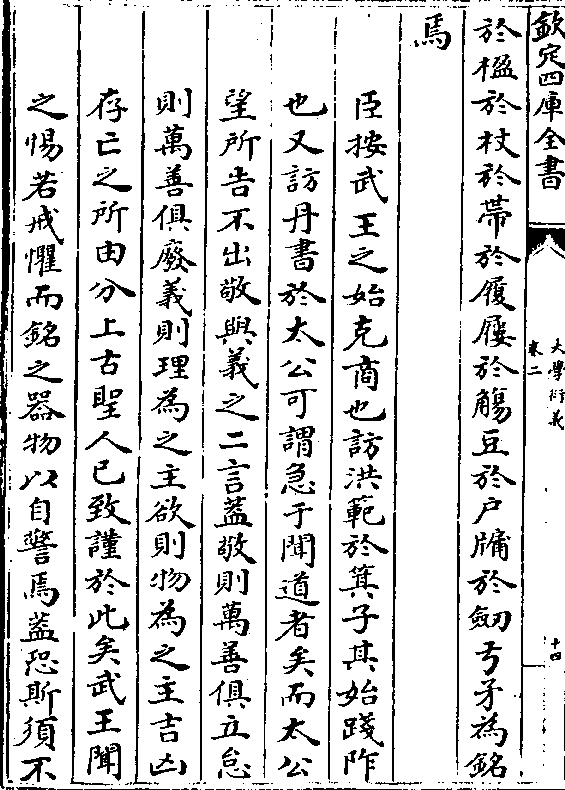 欽定四庫全書
大學衍義
卷二
十四
於楹於杖於帶於履屨於觴豆於户牖於劒弓矛為銘
焉
臣按武王之始克商也訪洪範於箕子其始踐阼
也又訪丹書於太公可謂急于聞道者矣而太公
望所告不出敬與義之二言蓋敬則萬善俱立怠
則萬善俱廢義則理為之主欲則物為之主吉凶
存亡之所由分上古聖人已致謹於此矣武王聞
之惕若戒懼而銘之器物以自警焉蓋恐斯須不